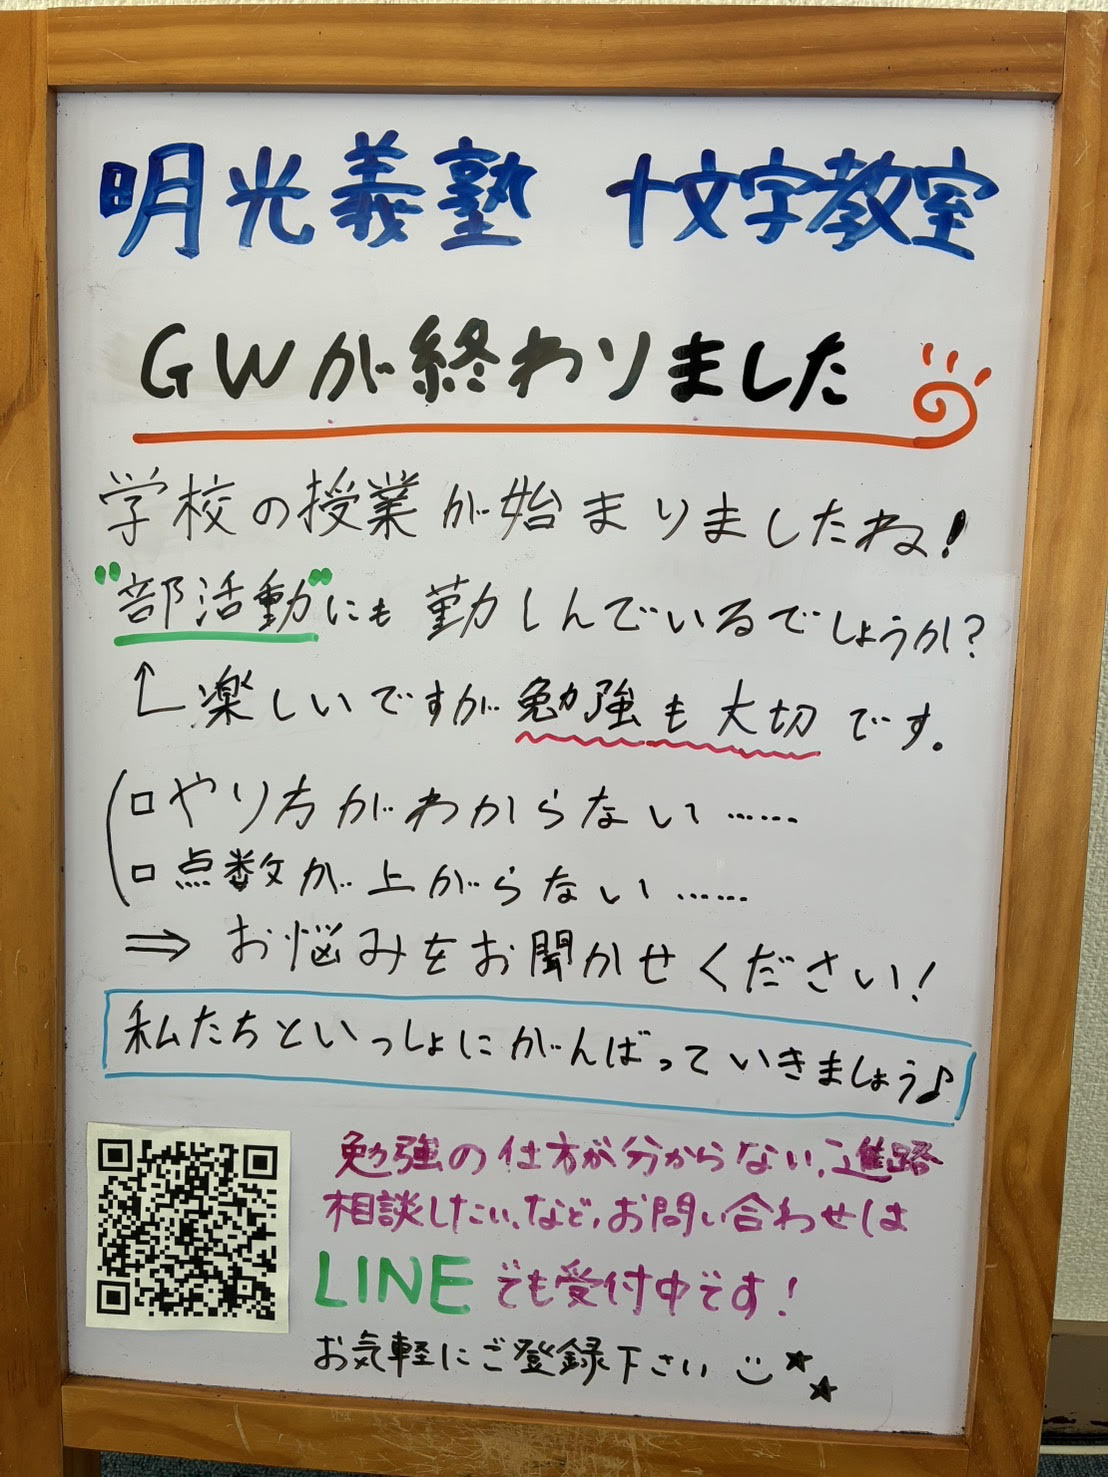 明光義塾 十文字教室
GWが終わりました
学校の授業が始まりましたね!
"部活動"にも勤しんでいるでしょうか?
↑楽しいですが勉強も大切です。
□やり方がわからない……
□点数が上がらない……
⇒お悩みをお聞かせください!
私たちといっしょにがんばっていきましょう♪
勉強の仕方が分からない、進路
相談したい、など、お問い合わせは
LINEでも受付中です!
お気軽にご登録下さい